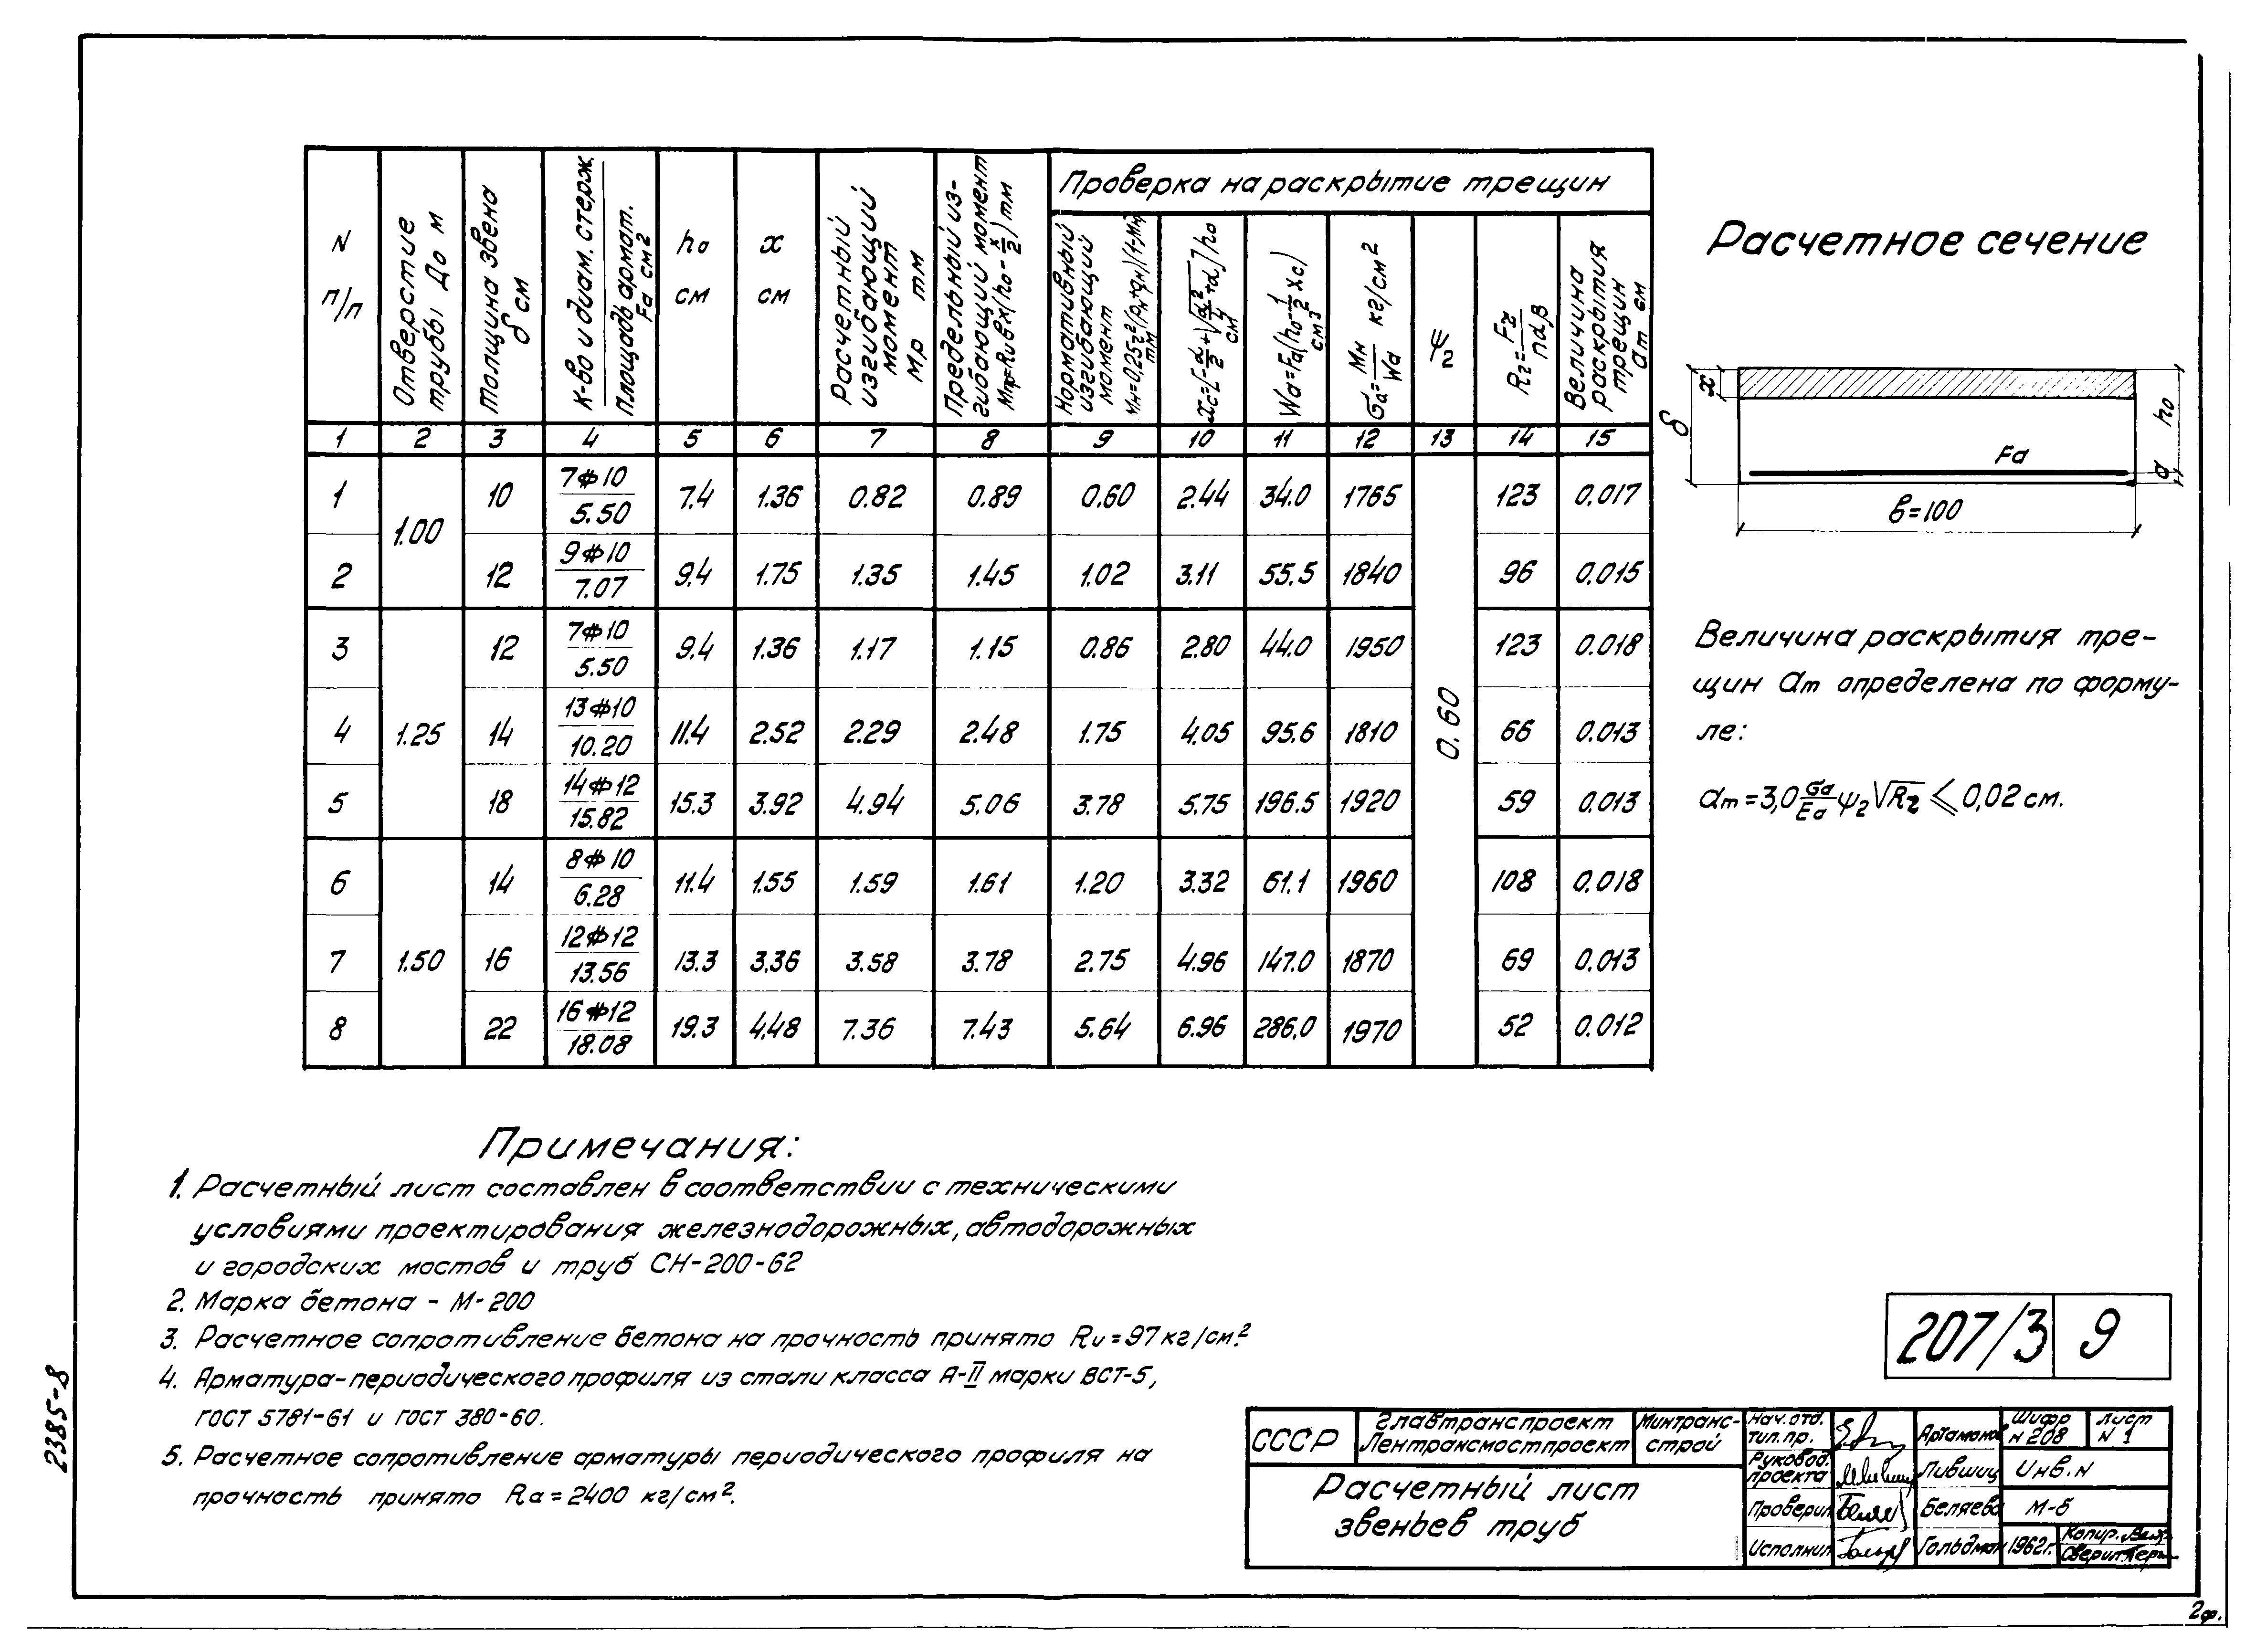 N п/п
Отверстие трубы До м
Толщина звена δ см
К-во и диам. стерж.
площадь армат. Fа см2
h₀ см
x см
Расчетный изгибающий момент Мр тм
Предельный изгибающий момент Мпр=Rи в x(h₀-x/2) тм
Проверка на раскрытие трещин
Нормативный изгибающий момент
xс=[-α/2+√(α²/4+α)]h₀ см
Wа=Fа(h₀-1/2 xс) см3
σа=Мн/Wа кг/см2
ψ2
Rг=Fг/ndβ
Величина раскрытия трещин ат см
1 2 3 4 5 6 7 8 9 10 11 12 13 14 15
1 1.00 10 7ф10/5.50 7.4 1.36 0.82 0.89 0.60 2.44 34.0 1765 0.60 123 0.017
2 12 9ф10/7.07 9.4 1.75 1.35 1.45 1.02 3.11 55.5 1840 96 0.015
3 1.25 12 7ф10/5.50 9.4 1.36 1.17 1.15 0.86 2.80 44.0 1950 123 0.018
4 14 13ф10/10.20 11.4 2.52 2.29 2.48 1.75 4.05 95.6 1810 66 0.013
5 18 14ф12/15.82 15.3 3.92 4.94 5.06 3.78 5.75 196.5 1920 59 0.013
6 1.50 14 8ф10/6.28 11.4 1.55 1.59 1.61 1.20 3.32 61.1 1960 108 0.018
7 16 12ф12/13.56 13.3 3.36 3.58 3.78 2.75 4.96 147.0 1870 69 0.013
8 22 16ф12/18.08 19.3 4.48 7.36 7.43 5.64 6.96 286.0 1970 52 0.012
Расчетное сечение
x
δ
h₀
Fа
а
в=100
Величина раскрытия тре-
щин ат определена по форму-
ле:
ат=3,0 σа/Eа ψ2√Rг ⩽ 0,02 см.
Примечания:
1. Расчетный лист составлен в соответствии с техническими
условиями проектирования железнодорожных, автодорожных
и городских мостов и труб СН-200-62
2. Марка бетона - М-200
3. Расчетное сопротивление бетона на прочность принято Rи=97кг/см.2
4. Арматура-периодического профиля из стали класса А-II марки ВСТ-5,
ГОСТ 5781-61 и ГОСТ 380-60.
5. Расчетное сопротивление арматуры периодического профиля на
прочность принято Rа=2400 кг/см2.
2385-8
207/3 9
СССР
Главтранспроект
Лентрансмостпроект
Минтранс-
строй
Расчетный лист
звеньев труб
Нач. отд.
тип. пр.
Артамонов
Шифр
N 208
Лист
N 1
Руковод.
проекта
Лившиц
Инв. N
Проверил
Беляева
М-б
Исполнил
Гольдман
1962г.
Копир.
Сверил
2ф.